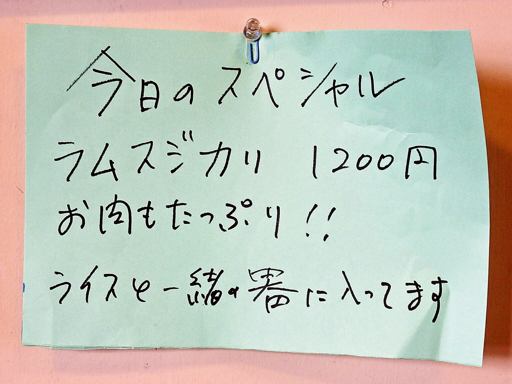 今日のスペシャル
ラムスジカリ 1200円
お肉もたっぷり!!
ライスと一緒の に入ってます